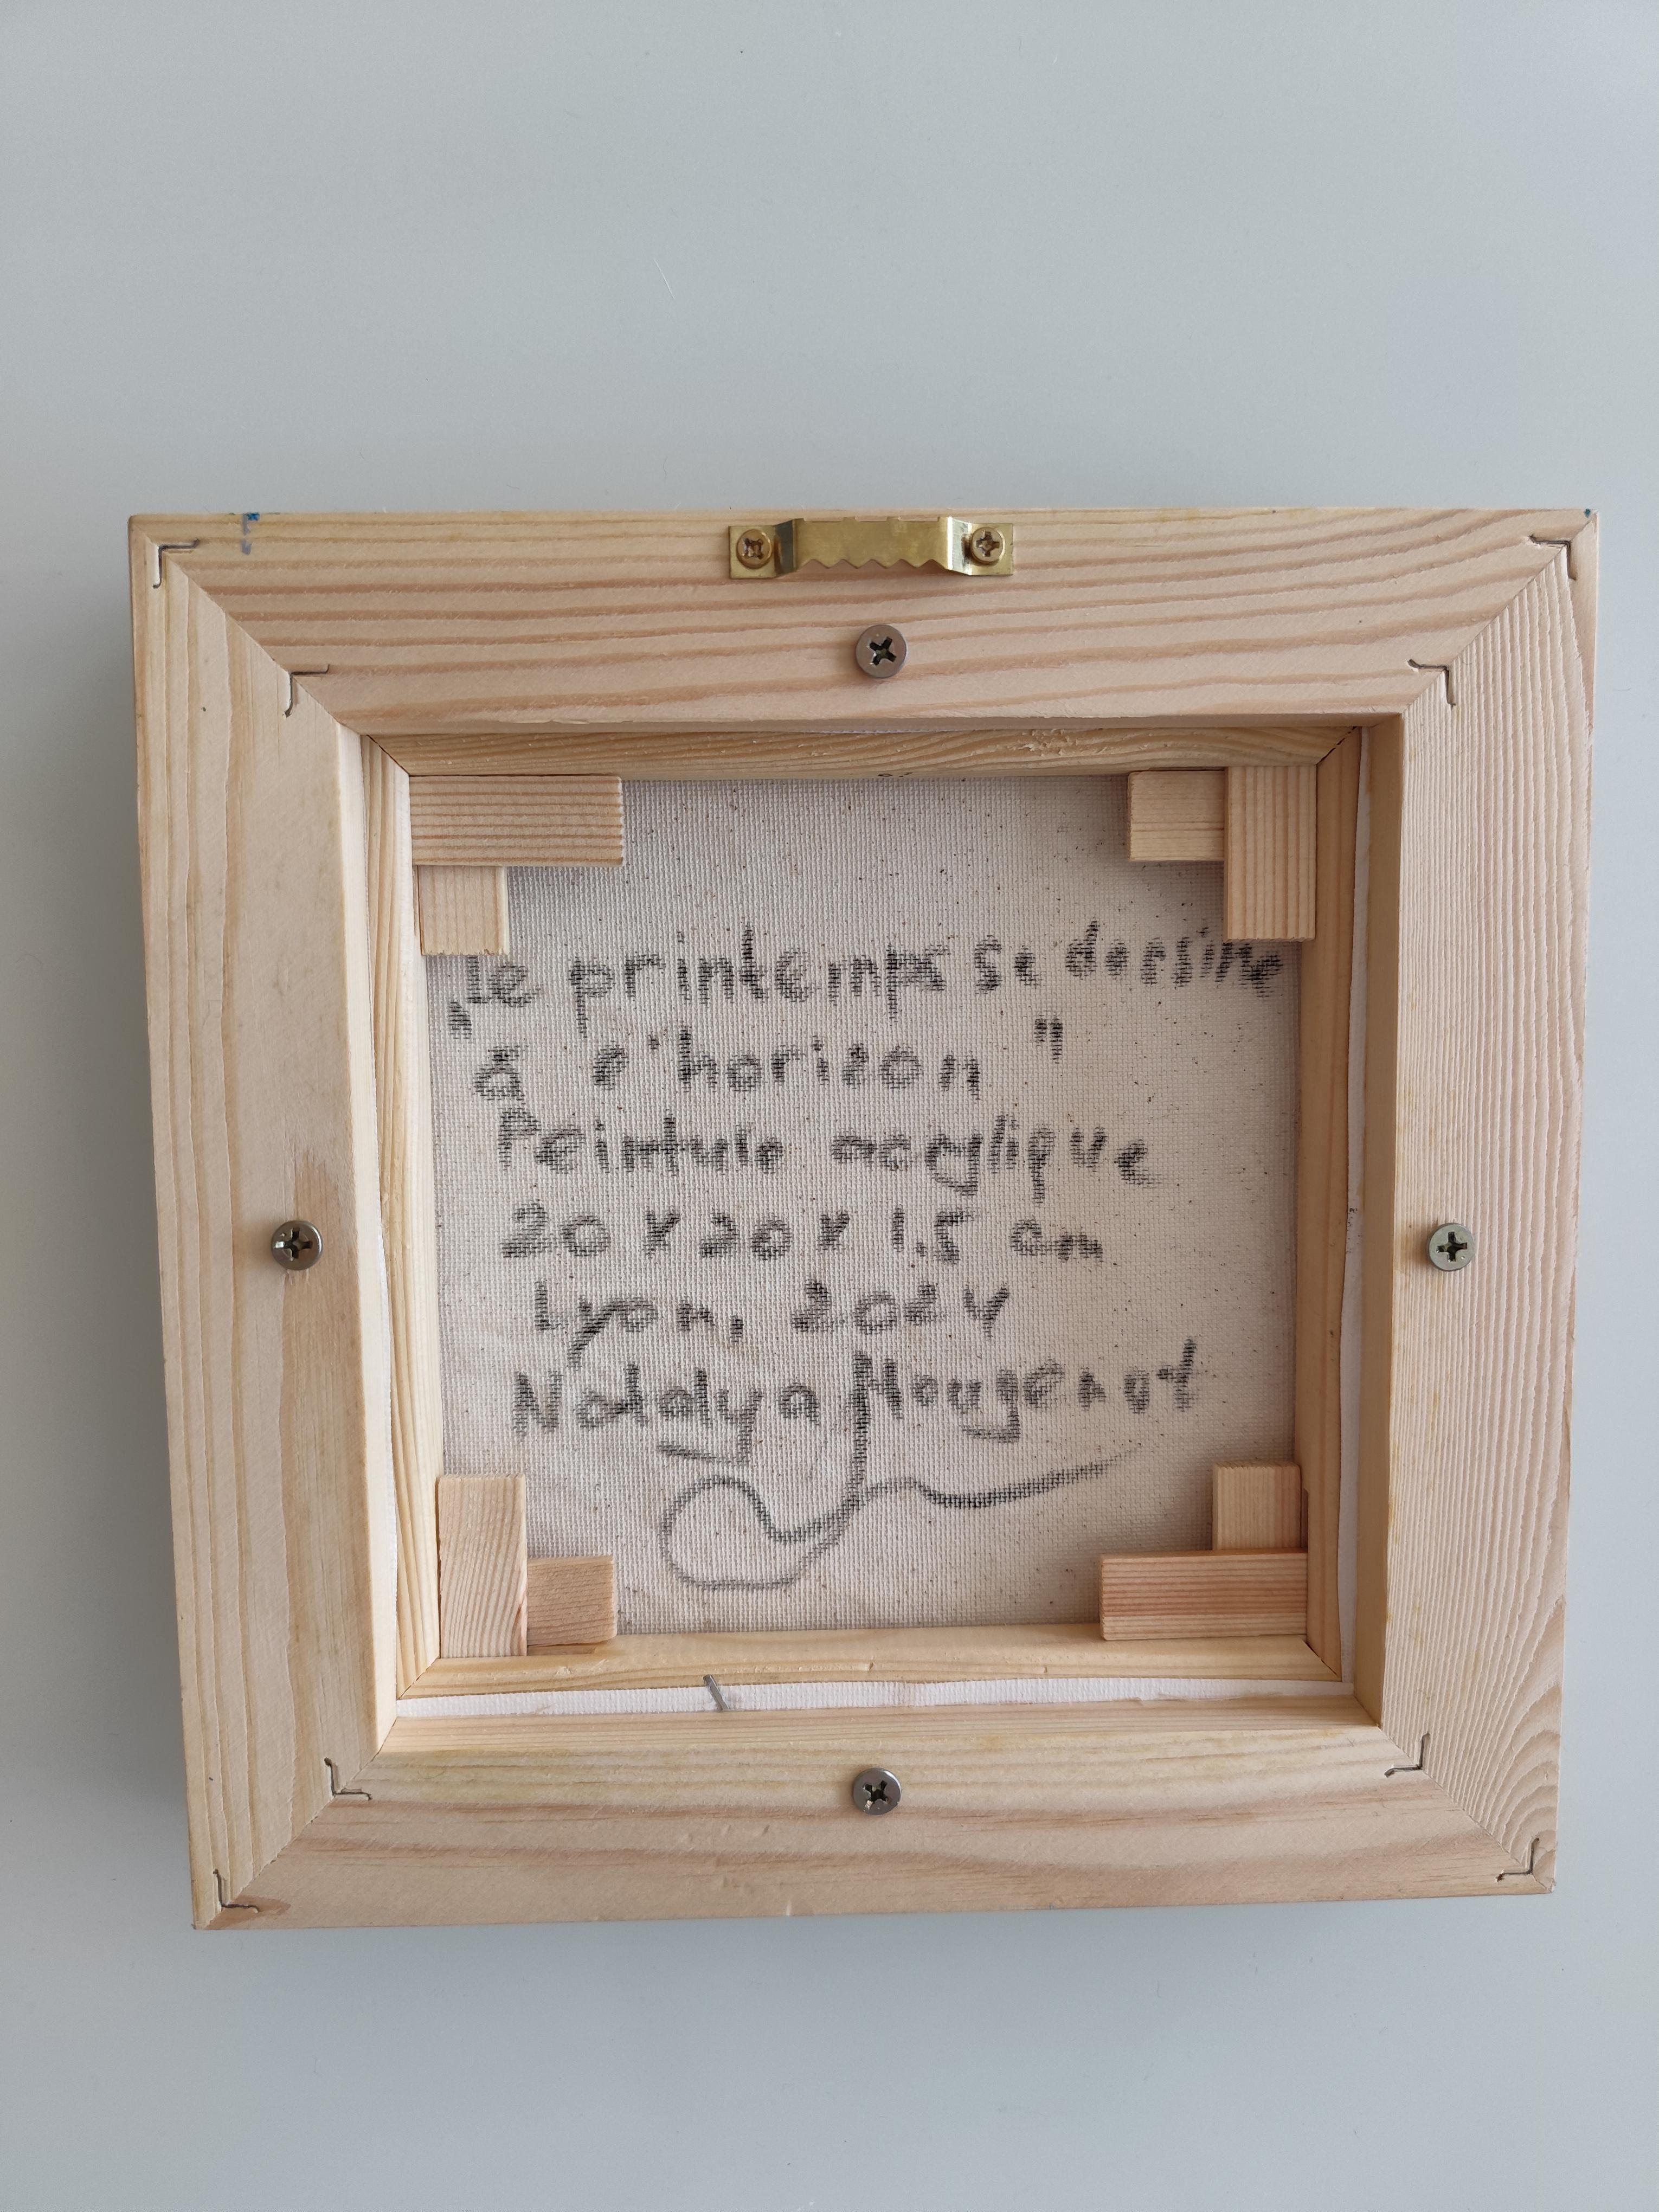 „Le printemps se dessine
à l'horizon"
Peinture acrylique
20 x 20 x 1,5 cm
Lyon, 2024
Natalya Mougenot